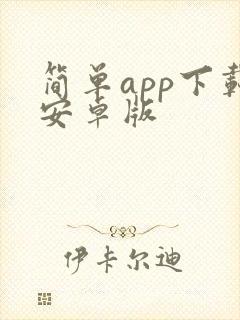 简单app下载
安卓版
伊卡尔迪